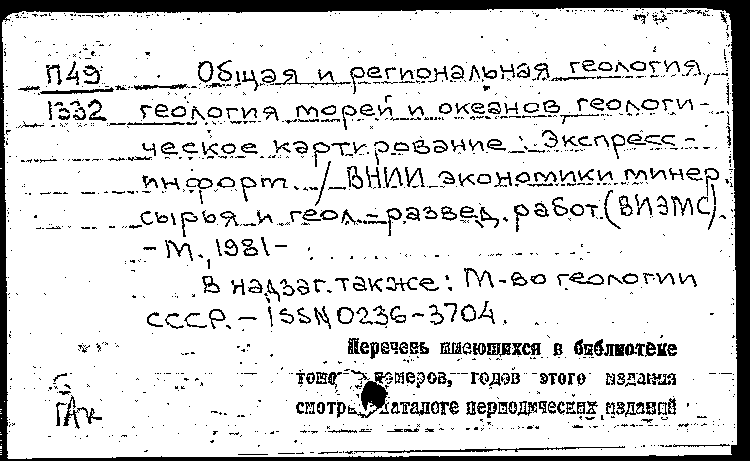 П49 Общая и региональная геология,
1332 геология морей и океанов, геологи-
ческое картирование : Экспресс-
информ. / ВНИИ экономики минер.
сырья и геол.-развед. работ. (ВИЭМС).
- М., 1981-
В надзаг. также: М-во геологии
СССР. - ISSN 0236-3704.
Перечень имеющихся в библиотеке
номеров, годов этого издания
смотри каталоге периодических изданий